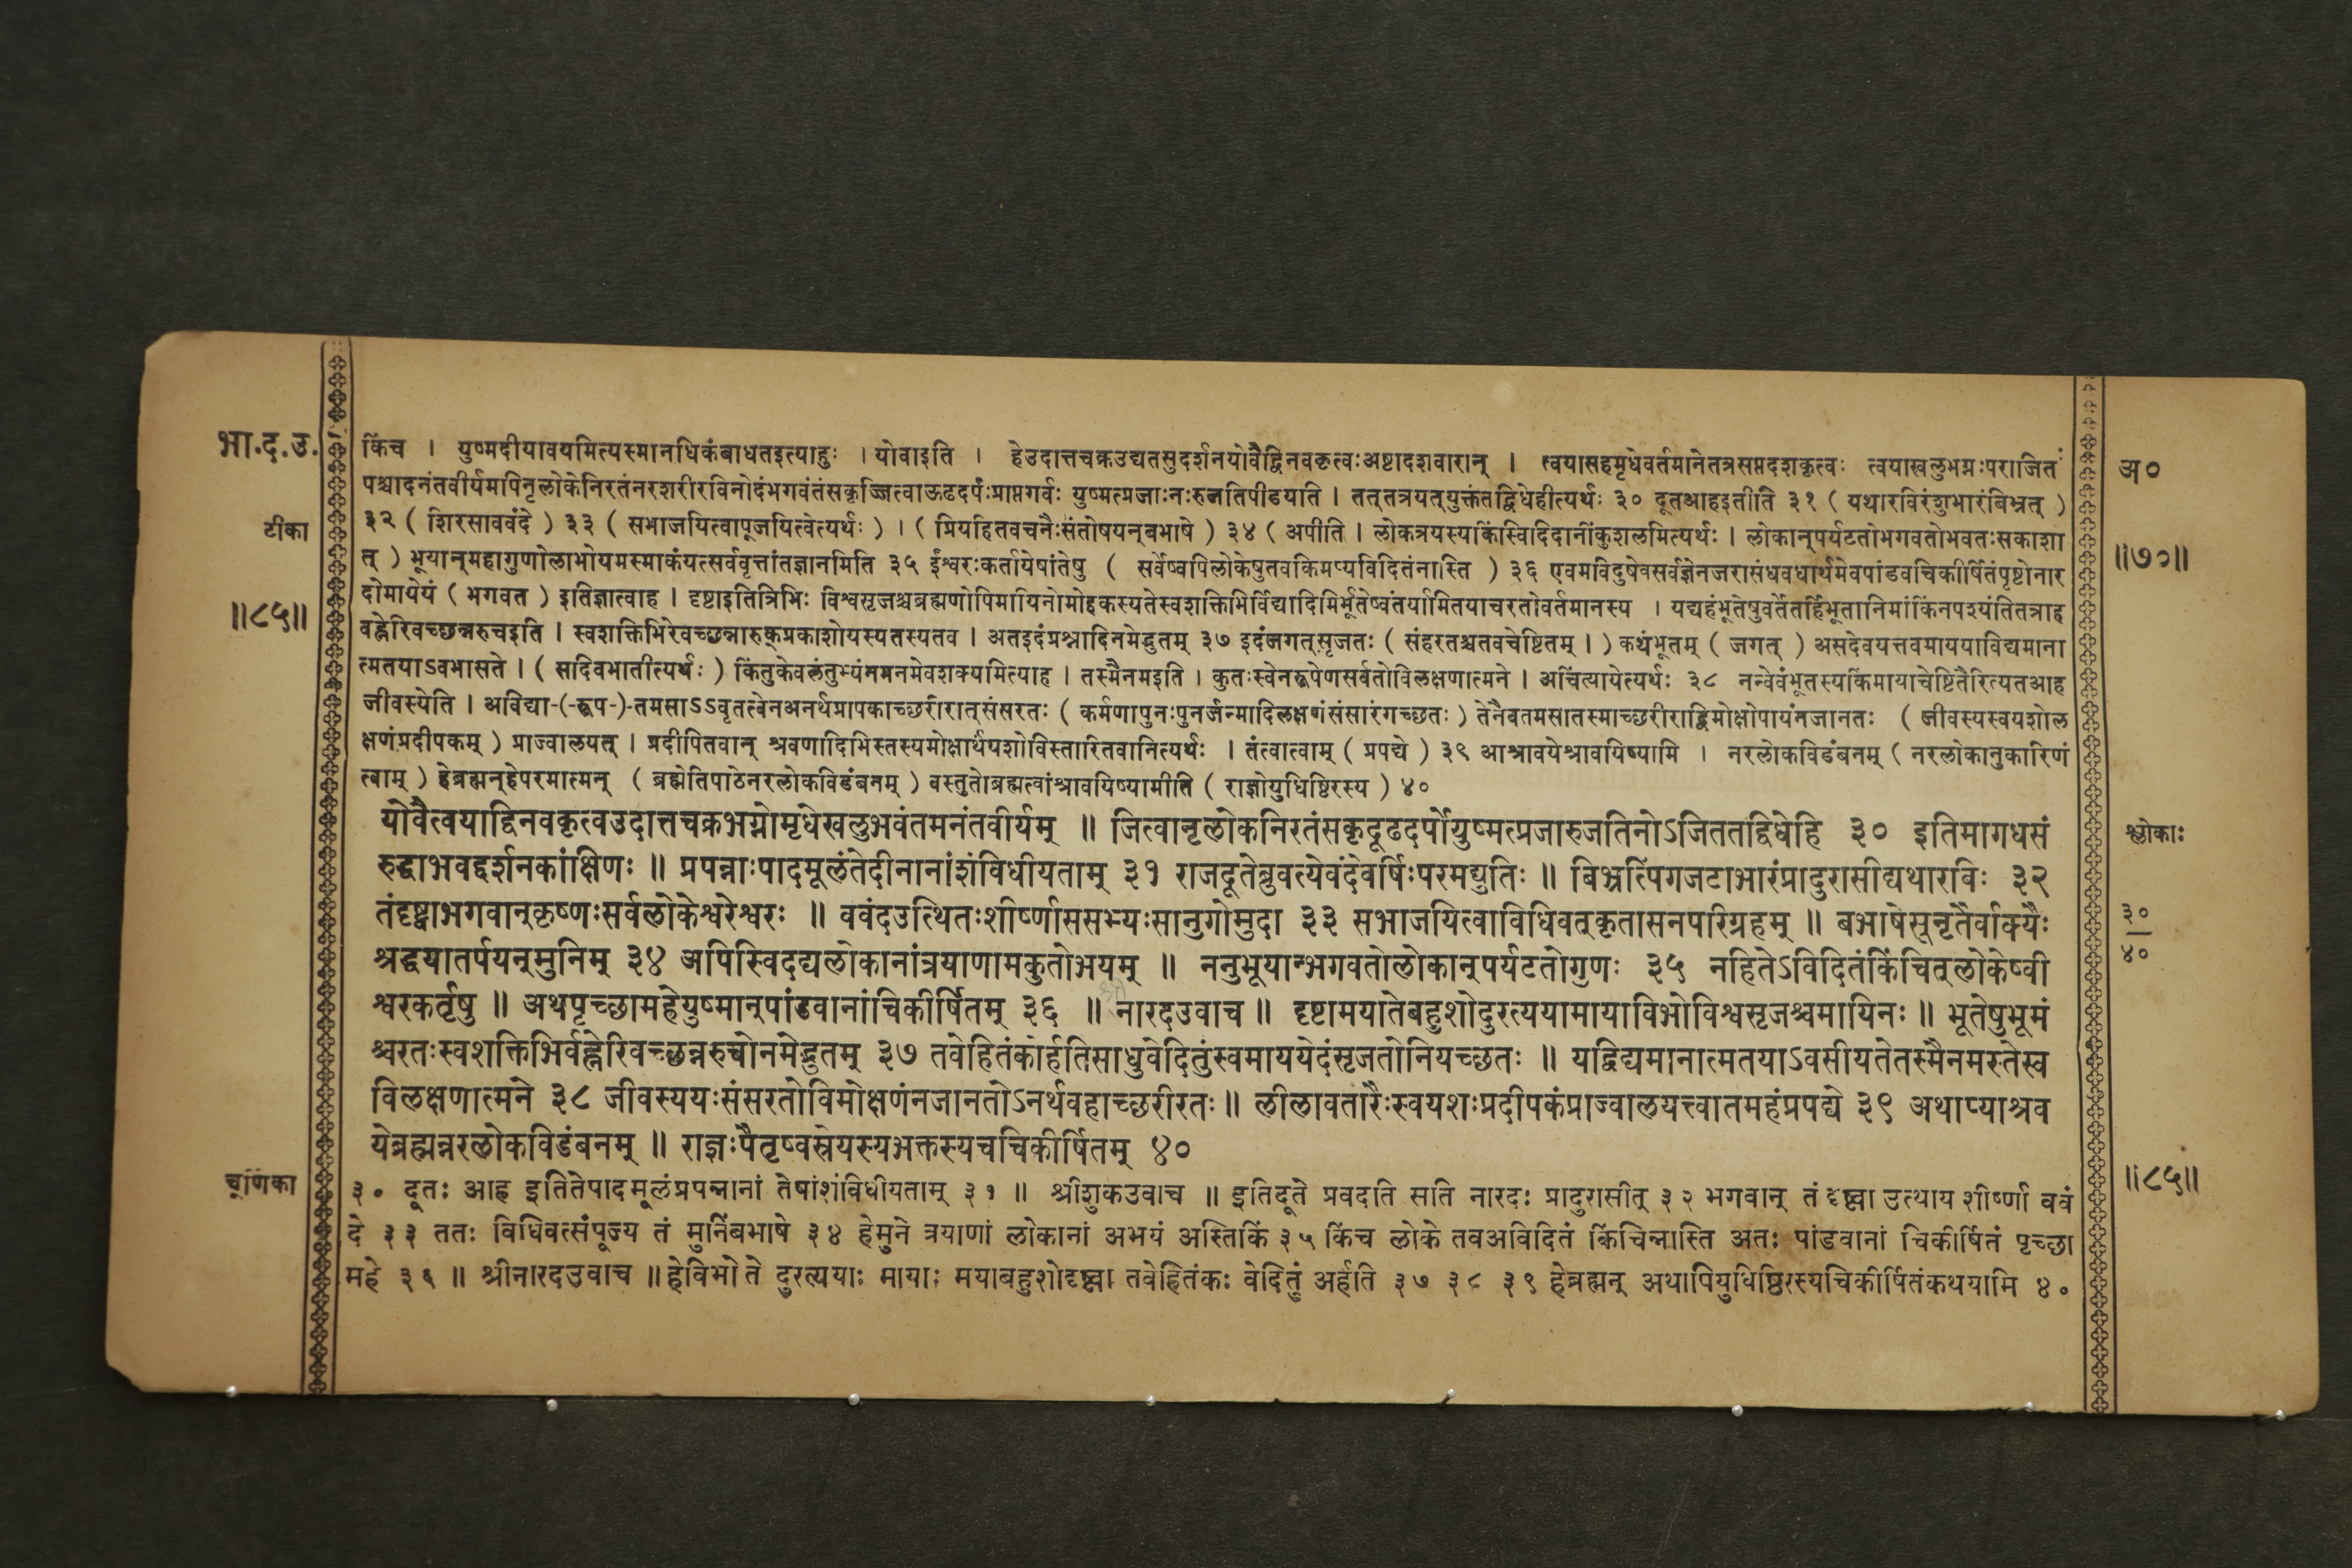 भा.द.उ.
टीका
॥८५॥
किंच । युष्मदीयावयमित्यस्मानधिकंबाधतइत्याहुः । योवाइति । हेउदात्तचक्रउद्यतसुदर्शनयोवैद्विनवकृत्वःअष्टादशवारान् । त्वयासहमृधेवर्तमानेतत्रसप्तदशकृत्वः त्वयाखलुभग्नःपराजितः
पश्चादनंतवीर्यमपिनृलोकेनिरतंनरशरीरविनोदंभगवंतंसकृज्जित्वाऊढदर्पःप्राप्तगर्वः युष्मत्प्रजाःनःरुजतिपीडयति । तत्तत्रयत्युक्तंतद्विधेहीत्यर्थः ३० दूतआहइतीति ३१ ( यथारविरंशुभारंबिभ्रत् )
३२ ( शिरसाववंदे ) ३३ ( सभाजयित्वापूजयित्वेत्यर्थः ) । ( प्रियहितवचनैःसंतोषयन्बभाषे ) ३४ ( अपीति । लोकत्रयस्यकिंस्विदिदानींकुशलमित्यर्थः । लोकान्पर्यटतोभगवतोभवतःसकाशा
त् ) भूयान्महागुणोलाभोयमस्माकंयत्सर्ववृत्तांतज्ञानमिति ३५ ईश्वरःकर्तायेषांतेषु ( सर्वेष्वपिलोकेषुतवकिमप्यविदितंनास्ति ) ३६ एवमविदुषेवसर्वज्ञेनजरासंधवधार्थमेवपांडवचिकीर्षितंपृष्टोनार
दोमायेयं ( भगवत ) इतिज्ञात्वाह । दृष्टाइतित्रिभिः विश्वसृजश्चब्रह्मणोपिमायिनोमोहकस्यतेस्वशक्तिभिर्विद्यादिमिर्भूतेष्वंतर्यामितयाचरतोवर्तमानस्य । यद्यहंभूतेषुवर्तेतर्हिभूतानिमांकिंनपश्यंतितत्राह
वह्नेरिवच्छन्नरुचइति । स्वशक्तिभिरेवच्छन्नारुक्प्रकाशोयस्यतस्यतव । अतइदंप्रश्नादिनमेद्भुतम् ३७ इदंजगत्सृजतः ( संहरतश्चतवचेष्टितम् । ) कथंभूतम् ( जगत् ) असदेवयत्तवमाययाविद्यमाना
त्मतयाऽवभासते । ( सदिवभातीत्यर्थः ) किंतुकेवलंतुभ्यंनमनमेवशक्यमित्याह । तस्मैनमइति । कुतःस्वेनरूपेणसर्वतोविलक्षणात्मने । अचिंत्यायेत्यर्थः ३८ नन्वेवंभूतस्यकिंमायाचेष्टितैरित्यतआह
जीवस्येति । अविद्या-(-रूप-)-तमसाऽऽवृतत्वेनअनर्थप्रापकाच्छरीरात्संसरतः ( कर्मणापुनःपुनर्जन्मादिलक्षणंसंसारंगच्छतः ) तेनैवतमसातस्माच्छरीराद्विमोक्षोपायंनजानतः ( जीवस्यस्वयशोल
क्षणंप्रदीपकम् ) प्राज्वालयत् । प्रदीपितवान् श्रवणादिभिस्तस्यमोक्षार्थंयशोविस्तारितवानित्यर्थः । तंत्वात्वाम् ( प्रपद्ये ) ३९ आश्रावयेश्रावयिष्यामि । नरलोकविडंबनम् ( नरलोकानुकारिणं
त्वाम् ) हेब्रह्मन्हेपरमात्मन् ( ब्रह्मेतिपाठेनरलोकविडंबनम् ) वस्तुतोब्रह्मत्वांश्रावयिष्यामीति ( राज्ञोयुधिष्ठिरस्य ) ४०
योवैत्वयाद्विनवकृत्वउदात्तचक्रभग्नोमृधेखलुभवंतमनंतवीर्यम् ॥ जित्वानृलोकनिरतंसकृदूढदर्पोयुष्मत्प्रजारुजतिनोऽजिततद्विधेहि ३० इतिमागधसं
रुद्धाभवद्दर्शनकांक्षिणः ॥ प्रपन्नाःपादमूलंतेदीनानांशंविधीयताम् ३१ राजदूतेब्रुवत्येवंदेवर्षिःपरमद्युतिः ॥ बिभ्रत्पिंगजटाभारंप्रादुरासीद्यथारविः ३२
तंदृष्ट्वाभगवान्कृष्णःसर्वलोकेश्वरेश्वरः ॥ ववंदउत्थितःशीर्ष्णाससभ्यःसानुगोमुदा ३३ सभाजयित्वाविधिवत्कृतासनपरिग्रहम् ॥ बभाषेसूनृतैर्वाक्यैः
श्रद्धयातर्पयन्मुनिम् ३४ अपिस्विदद्यलोकानांत्रयाणामकुतोभयम् ॥ ननुभूयान्भगवतोलोकान्पर्यटतोगुणः ३५ नहितेऽविदितंकिंचित्लोकेष्वी
श्वरकर्तृषु ॥ अथपृच्छामहेयुष्मान्पांडवानांचिकीर्षितम् ३६ ॥ नारदउवाच ॥ दृष्टामयातेबहुशोदुरत्ययामायाविभोविश्वसृजश्चमायिनः ॥ भूतेषुभूमं
श्चरतःस्वशक्तिभिर्वह्नेरिवच्छन्नरुचोनमेद्भुतम् ३७ तवेहितंकोर्हतिसाधुवेदितुंस्वमाययेदंसृजतोनियच्छतः ॥ यद्विद्यमानात्मतयाऽवसीयतेतस्मैनमस्तेस्व
विलक्षणात्मने ३८ जीवस्ययःसंसरतोविमोक्षणंनजानतोऽनर्थवहाच्छरीरतः ॥ लीलावतारैःस्वयशःप्रदीपकंप्राज्वालयत्त्वातमहंप्रपद्ये ३९ अथाप्याश्रव
येब्रह्मन्नरलोकविडंबनम् ॥ राज्ञःपैतृष्वस्रेयस्यभक्तस्यचचिकीर्षितम् ४०
चूर्णिका
३० दूतः आह इतितेपादमूलंप्रपन्नानां तेषांशंविधीयताम् ३१ ॥ श्रीशुकउवाच ॥ इतिदूते प्रवदति सति नारदः प्रादुरासीत् ३२ भगवान् तं दृष्ट्वा उत्थाय शीर्ष्णा ववं
दे ३३ ततः विधिवत्संपूज्य तं मुनिंबभाषे ३४ हेमुने त्रयाणां लोकानां अभयं अस्तिकिं ३५ किंच लोके तवअविदितं किंचिन्नास्ति अतः पांडवानां चिकीर्षितं पृच्छा
महे ३६ ॥ श्रीनारदउवाच ॥ हेविभो ते दुरत्ययाः मायाः मयाबहुशोदृष्ट्वा तवेहितंकः वेदितुं अर्हति ३७ ३८ ३९ हेब्रह्मन् अथापियुधिष्ठिरस्यचिकीर्षितंकथयामि ४०
अ०
॥७०॥
श्लोकाः
३०
४०
॥८५॥